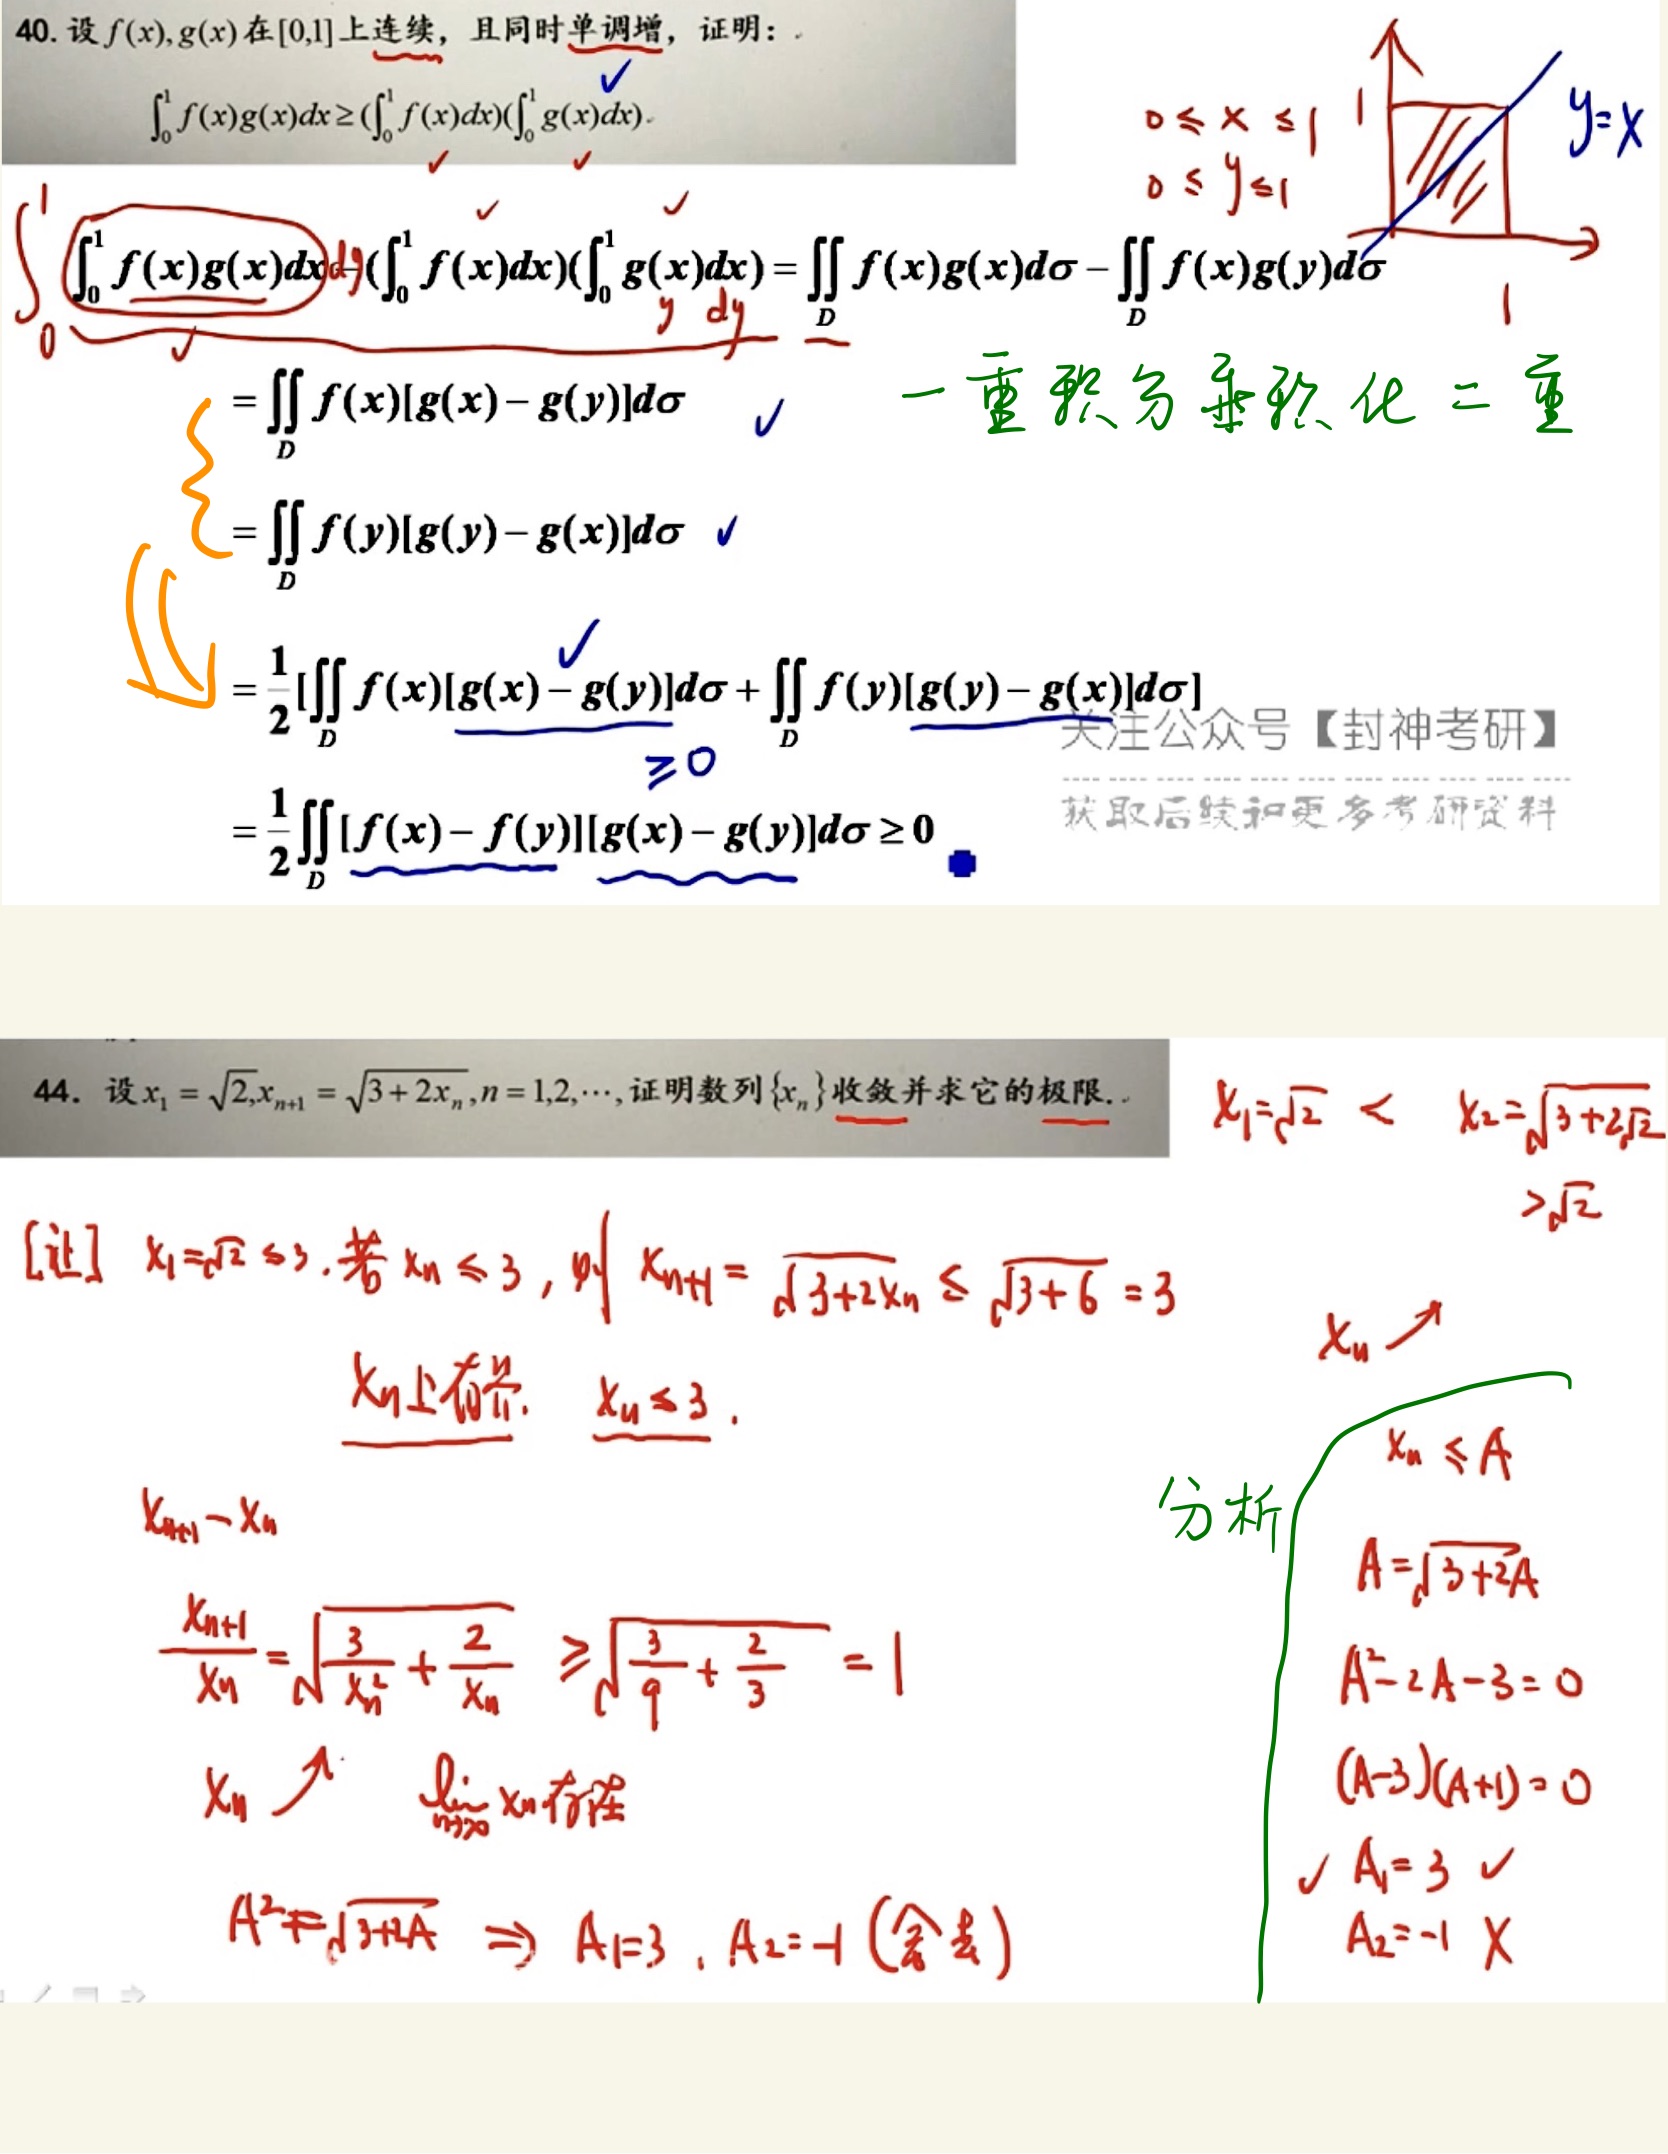 40. 设 f(x), g(x) 在 [0,1] 上连续，且同时单调增，证明：
∫₀¹ f(x)g(x)dx ≥ (∫₀¹ f(x)dx)(∫₀¹ g(x)dx).
0 ≤ x ≤ 1
0 ≤ y ≤ 1
1
y=x
1
∫₀¹ ∫₀¹ f(x)g(x)dx dy − (∫₀¹ f(x)dx)(∫₀¹ g(x)dx) = ∬_D f(x)g(x)dσ − ∬_D f(x)g(y)dσ
y dy
= ∬_D f(x)[g(x) − g(y)]dσ
一重积分乘积化二重
= ∬_D f(y)[g(y) − g(x)]dσ
= 1/2 [∬_D f(x)[g(x) − g(y)]dσ + ∬_D f(y)[g(y) − g(x)]dσ]
≥0
关注公众号【封神考研】
获取后续和更多考研资料
= 1/2 ∬_D [f(x) − f(y)][g(x) − g(y)]dσ ≥ 0
44. 设 x₁ = √2, xₙ₊₁ = √(3 + 2xₙ), n = 1,2,⋯, 证明数列{xₙ}收敛并求它的极限.
x₁=√2 < x₂=√(3+2√2)
>√2
[证] x₁=√2 ≤3. 若 xₙ ≤ 3, 则 xₙ₊₁ = √(3+2xₙ) ≤ √(3+6) = 3
xₙ ↗
xₙ上有界. xₙ ≤ 3.
xₙ₊₁ − xₙ
xₙ₊₁/xₙ = √(3/xₙ² + 2/xₙ) ≥ √(3/9 + 2/3) = 1
xₙ ↗ lim n→∞ xₙ 存在
A² = √(3+2A) ⇒ A₁=3, A₂=-1 (舍去)
分析
xₙ ≤ A
A=√(3+2A)
A²-2A-3=0
(A-3)(A+1)=0
✓ A₁=3 ✓
A₂=-1 X